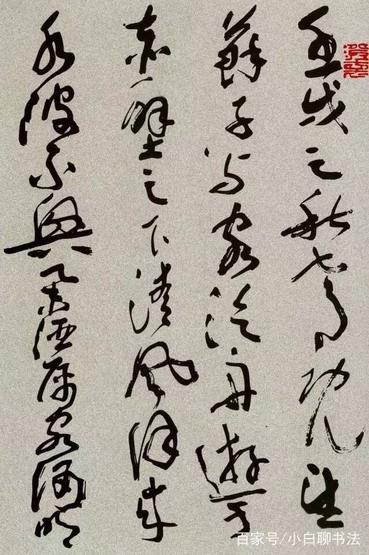 壬戌之秋七月既望
蘇子与客泛舟遊于
赤壁之下清風徐来
水波不興舉酒屬客誦明
百家号/小白聊书法